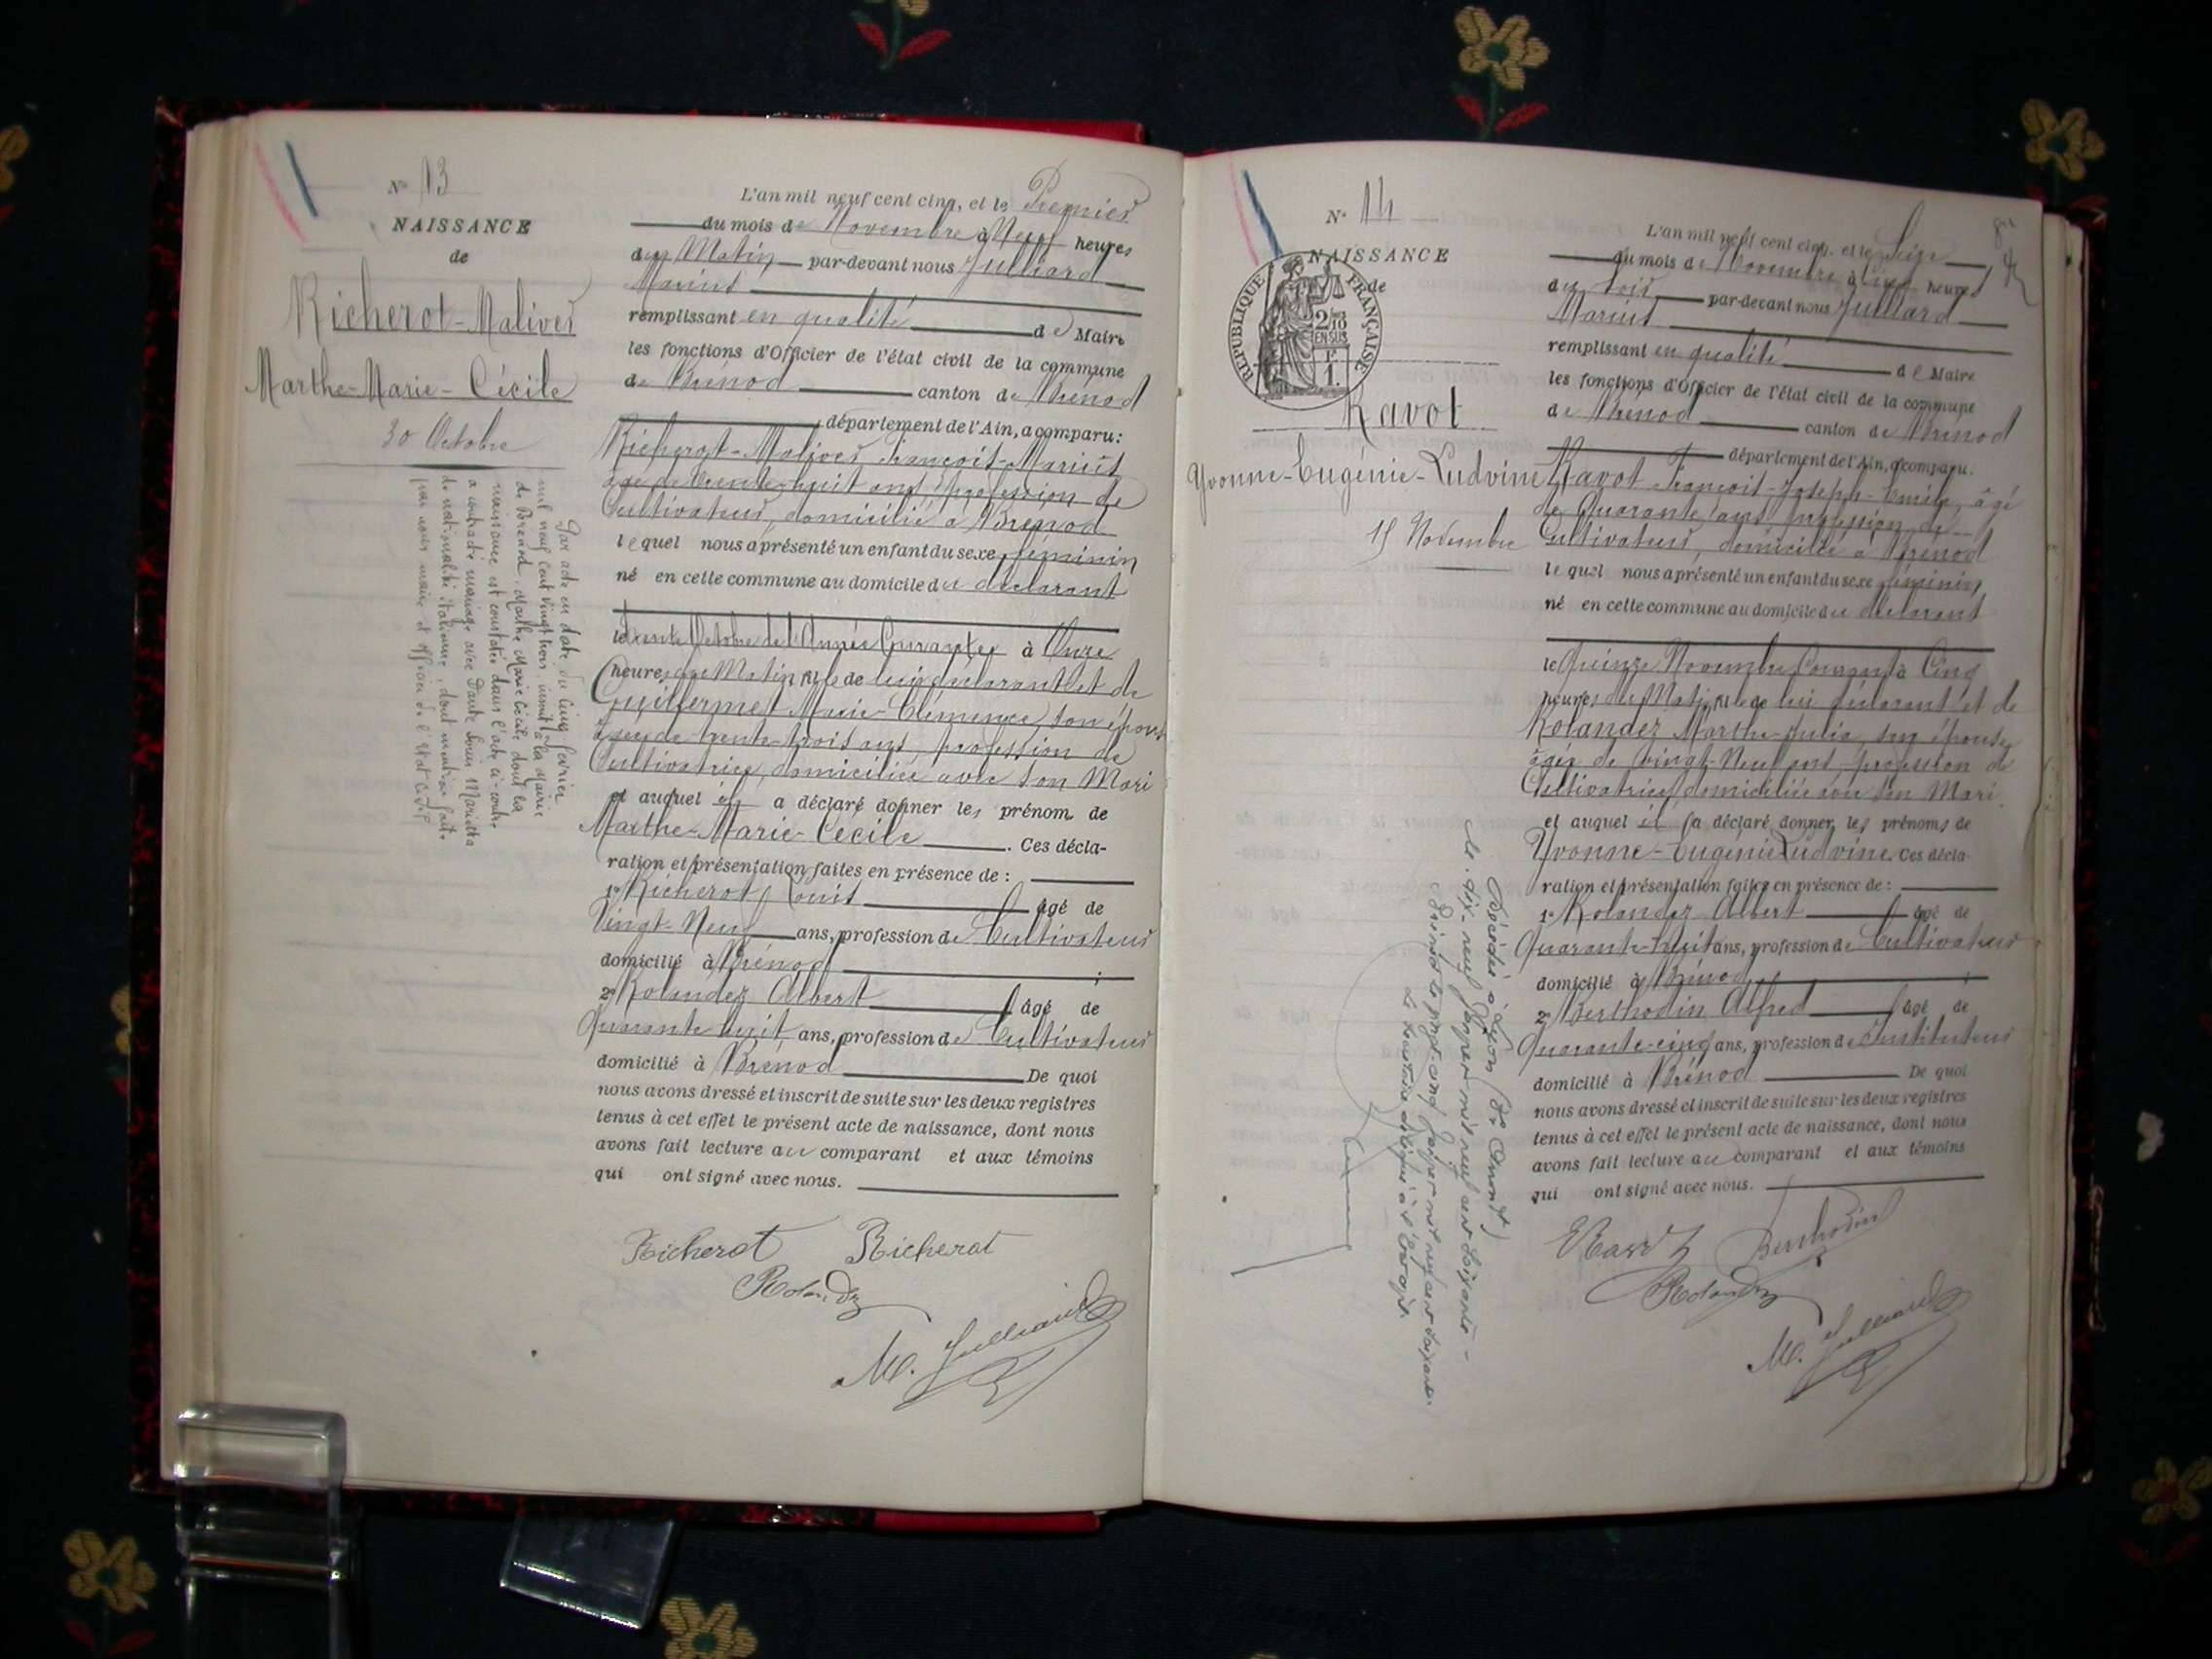 N° 13
NAISSANCE
de
Richerot-Malives
Marthe-Marie-Cécile
30 Octobre
Par acte en date du cinq février
mil neuf cent vingt trois, inscrit à la Mairie
de Brénod, Marthe Marie Cécile dont la
naissance est constatée dans l'acte ci-contre
a contracté mariage avec Dante Louis Marietta
de nationalité italienne, dont mention faite
par nous maire et officier de l'état civil
L'an mil neuf cent cinq, et le Premier
du mois de Novembre à Neuf heures
du Matin par-devant nous Julliard
Marius
remplissant en qualité de Maire
les fonctions d'Officier de l'état civil de la commune
de Brénod canton de Brénod
département de l'Ain, a comparu:
Richerot-Malives François-Marius
âgé de trente-huit ans, profession de
Cultivateur, domicilié à Brénod
lequel nous a présenté un enfant du sexe féminin
né en cette commune au domicile du déclarant
le trente Octobre de l'Année Courante à Onze
heures du Matin, fille de lui déclarant et de
Guillermet Marie-Clémence, son épouse
âgée de trente-trois ans profession de
Cultivatrice, domiciliée avec son Mari
et auquel il a déclaré donner les prénom de
Marthe-Marie-Cécile. Ces décla-
ration et présentation faites en présence de :
1° Richerot Louis âgé de
Vingt-Neuf ans, profession de Cultivateur
domicilié à Brénod ;
2° Rolandez Albert âgé de
Quarante huit ans, profession de Cultivateur
domicilié à Brénod De quoi
nous avons dressé et inscrit de suite sur les deux registres
tenus à cet effet le présent acte de naissance, dont nous
avons fait lecture au comparant et aux témoins
qui ont signé avec nous.
Richerot Richerot
Rolandez
M. Julliard
N° 14
NAISSANCE
de
RÉPUBLIQUE FRANÇAISE
2/10
EN SUS
1.
Ravot
Yvonne-Eugénie-Ludvine
15 Novembre
Décédée à Lyon
le dix-neuf janvier mil neuf cent soixante-
Brénod le vingt-cinq janvier mil neuf cent soixante
Le secrétaire délégué à l'état civil
L'an mil neuf cent cinq, et le Seize
du mois de Novembre à heures
du soir par-devant nous Julliard
Marius
remplissant en qualité de Maire
les fonctions d'Officier de l'état civil de la commune
de Brénod canton de Brénod
département de l'Ain, a comparu.
Ravot François-Joseph-Emile, âgé
de Quarante ans, profession de
Cultivateur, domicilié à Brénod
lequel nous a présenté un enfant du sexe féminin
né en cette commune au domicile du déclarant
le Quinze Novembre Courant à Cinq
heures du Matin, fille de lui déclarant et de
Rolandez Marthe-Julie, son épouse
âgée de vingt-Neuf ans profession de
Cultivatrice, domiciliée avec son Mari.
et auquel il a déclaré donner les prénoms de
Yvonne-Eugénie Ludvine. Ces décla-
ration et présentation faites en présence de :
1° Rolandez Albert âgé de
Quarante-huit ans, profession de Cultivateur
domicilié à Brénod ;
2° Berthodin Alfred âgé de
Quarante-cinq ans, profession de Instituteur
domicilié à Brénod De quoi
nous avons dressé et inscrit de suite sur les deux registres
tenus à cet effet le présent acte de naissance, dont nous
avons fait lecture au comparant et aux témoins
qui ont signé avec nous.
Ravot Berthodin
Rolandez
M. Julliard